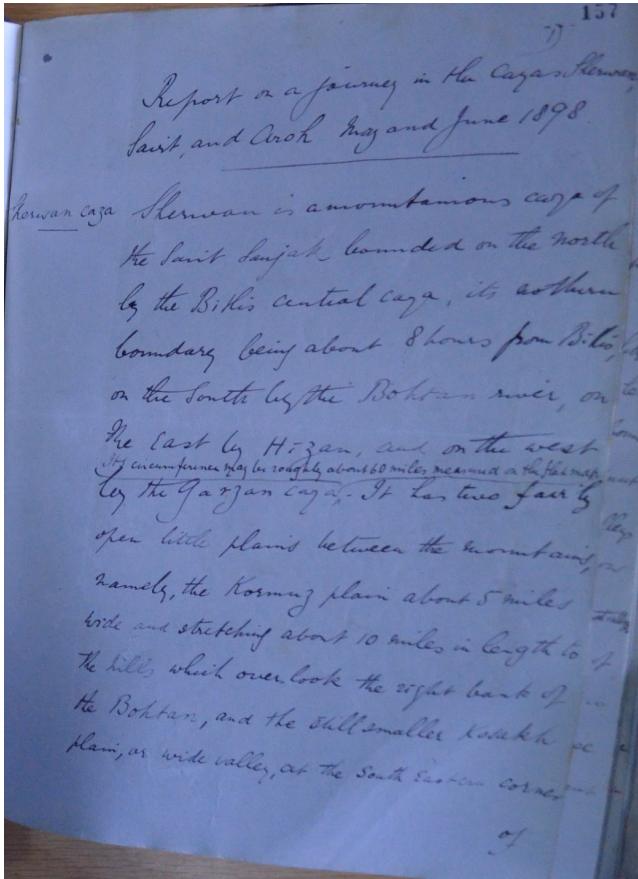 157
Report on a journey in the Cazas Sherwan,
Sairt, and Aroh May and June 1898.
Sherwan caza
Sherwan is a mountainous caza of
the Sairt Sanjak bounded on the North
by the Bitlis central caza, its nothern
boundary being about 8 hours from Bitlis,
on the South by the Bohtan river, on
the East by Hizan, and on the west
Its circumference may be roughly about 60 miles measured on the flat map
by the Garzan caza. It has two fairly
open little plains between the mountains,
namely, the Kormuz plain about 5 miles
wide and stretching about 10 miles in length to
the hills which overlook the right bank of
the Bohtan, and the still smaller
plain, or wide valley, at the South Eastern corner
of